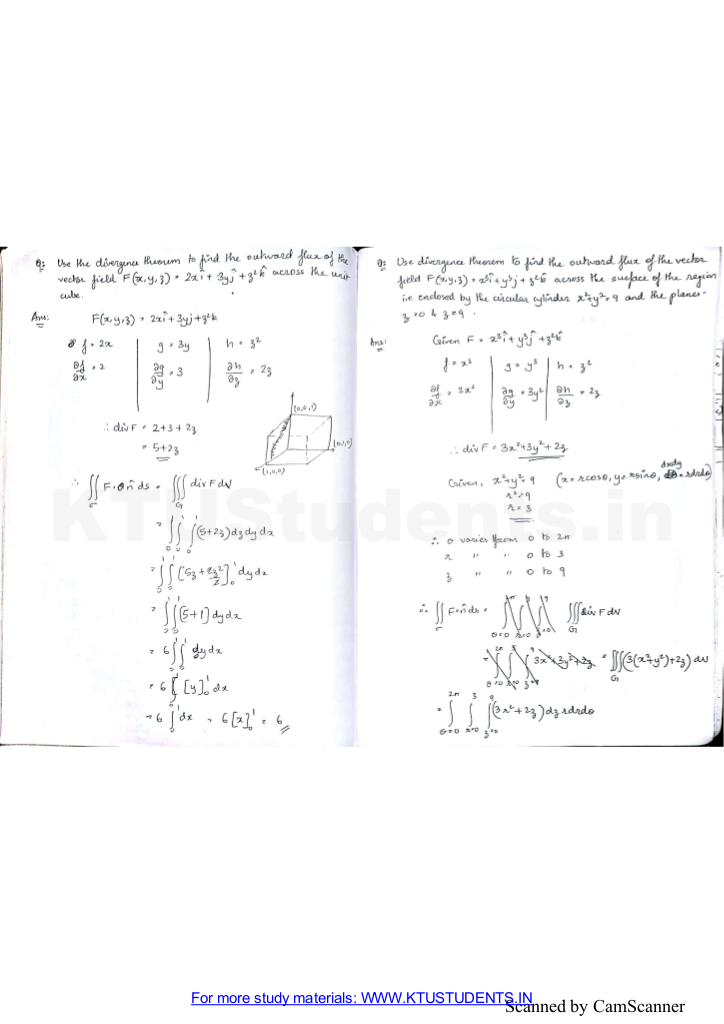 Q: Use the divergence theorem to find the outward flux of the
vector field F(x,y,z) = 2xî + 3yĵ + z²k̂ across the unit
cube.
Ans: F(x,y,z) = 2xî + 3yj + z²k
f = 2x | g = 3y | h = z²
∂f/∂x = 2 | ∂g/∂y = 3 | ∂h/∂z = 2z
∴ div F = 2+3+2z
= 5+2z
(0,0,1)
(0,1,0)
(1,0,0)
∴ ∬σ F·n̂ ds = ∭G div F dV
= ∫₀¹ ∫₀¹ ∫₀¹ (5+2z) dz dy dx
= ∫₀¹ ∫₀¹ [5z + 2z²/2]₀¹ dy dx
= ∫₀¹ ∫₀¹ [5+1] dy dx
= 6 ∫₀¹ ∫₀¹ dy dx
= 6 ∫₀¹ [y]₀¹ dx
= 6 ∫₀¹ dx = 6[x]₀¹ = 6
Q: Use divergence theorem to find the outward flux of the vector
field F(x,y,z) = x³î + y³j + z²k̂ across the surface of the region
i.e enclosed by the circular cylinder x²+y²=9 and the planes
z=0 & z=9.
Ans: Given F = x³î + y³ĵ + z²k̂
f = x³ | g = y³ | h = z²
∂f/∂x = 3x² | ∂g/∂y = 3y² | ∂h/∂z = 2z
∴ div F = 3x²+3y²+2z
Given, x²+y²=9 (x = rcosθ, y = rsinθ, dxdy = rdrdθ)
r² = 9
r = 3
∴ θ varies from 0 to 2π
r " " 0 to 3
z " " 0 to 9
∴ ∬σ F·n̂ ds = ∭G div F dV
= ∭G (3(x²+y²)+2z) dV
= ∫θ=0^2π ∫r=0^3 ∫z=0^9 (3r²+2z) dz rdrdθ
KTUStudents.in
For more study materials: WWW.KTUSTUDENTS.IN
Scanned by CamScanner